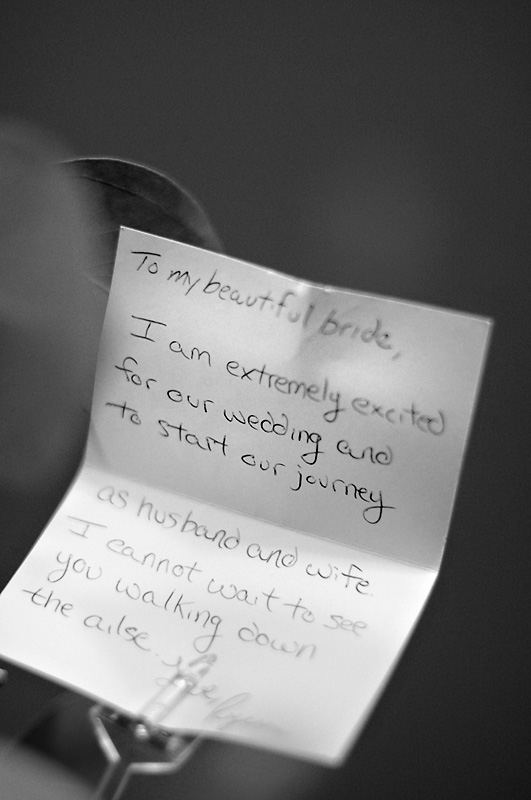 To my beautiful bride,
I am extremely excited
for our wedding and
to start our journey
as husband and wife.
I cannot wait to see
you walking down
the ailse.